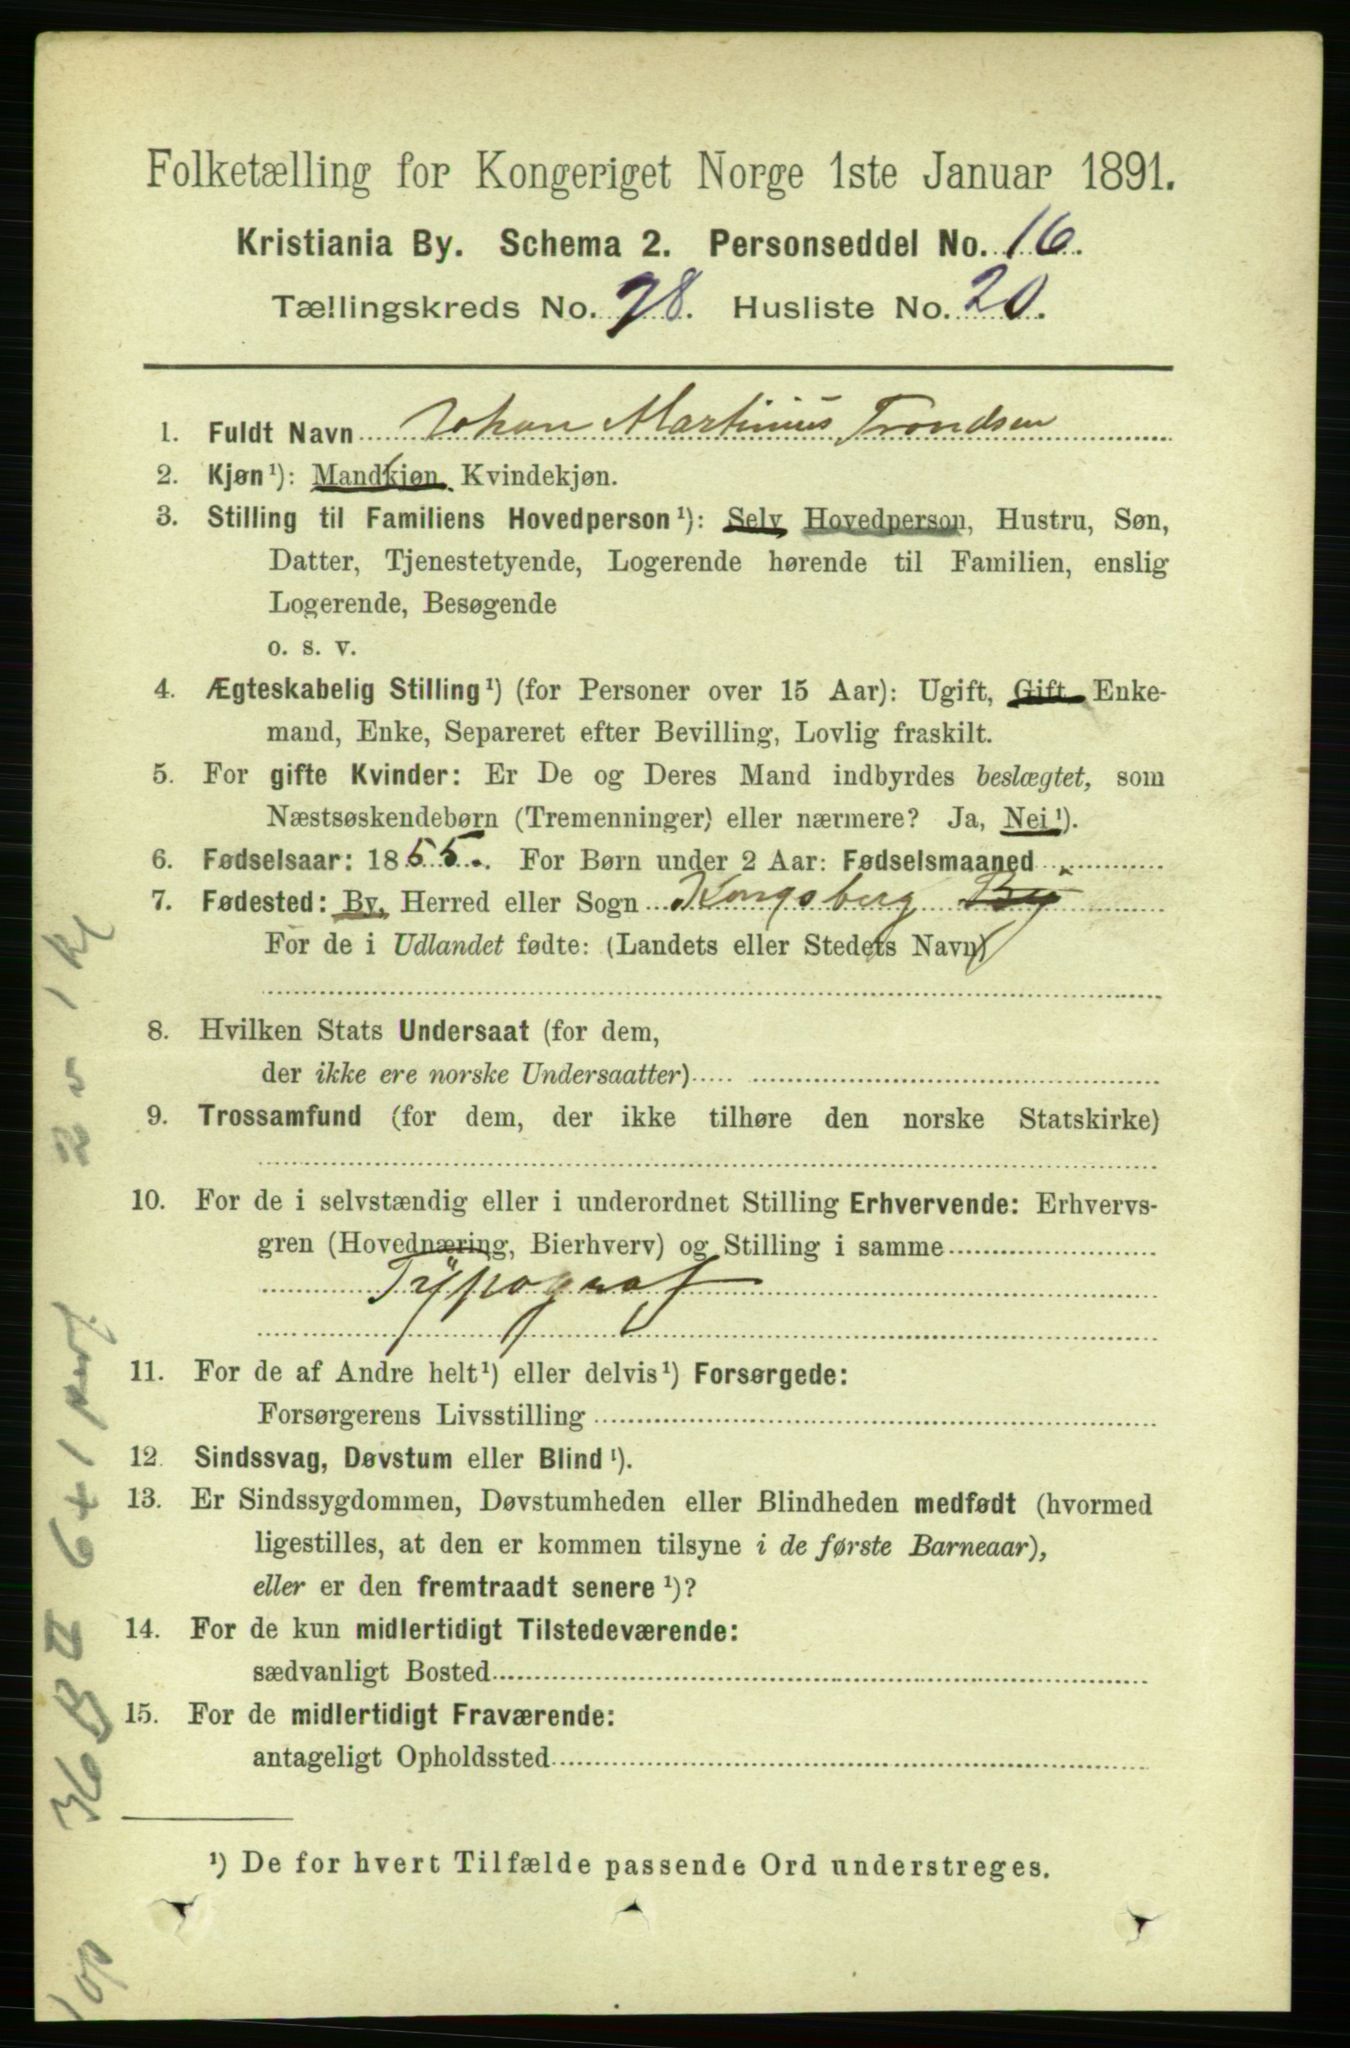 Folketælling for Kongeriget Norge 1ste Januar 1891.
Kristiania By. Schema 2. Personseddel No. 16.
Tællingskreds No. 98. Husliste No. 20.
1. Fuldt Navn Johan Martinius Trondsen
2. Kjøn¹): Mandkjøn, Kvindekjøn.
3. Stilling til Familiens Hovedperson¹): Selv Hovedperson, Hustru, Søn,
Datter, Tjenestetyende, Logerende hørende til Familien, enslig
Logerende, Besøgende
o. s. v.
4. Ægteskabelig Stilling¹) (for Personer over 15 Aar): Ugift, Gift, Enke-
mand, Enke, Separeret efter Bevilling, Lovlig fraskilt.
5. For gifte Kvinder: Er De og Deres Mand indbyrdes beslægtet, som
Næstsøskendebørn (Tremenninger) eller nærmere? Ja, Nei¹).
6. Fødselsaar: 1855. For Børn under 2 Aar: Fødselsmaaned
7. Fødested: By, Herred eller Sogn Kongsberg By
For de i Udlandet fødte: (Landets eller Stedets Navn)
8. Hvilken Stats Undersaat (for dem,
der ikke ere norske Undersaatter)
9. Trossamfund (for dem, der ikke tilhøre den norske Statskirke)
10. For de i selvstændig eller i underordnet Stilling Erhvervende: Erhvervs-
gren (Hovednæring, Bierhverv) og Stilling i samme
Typograf
11. For de af Andre helt¹) eller delvis¹) Forsørgede:
Forsørgerens Livsstilling
12. Sindssvag, Døvstum eller Blind¹).
13. Er Sindssygdommen, Døvstumheden eller Blindheden medfødt (hvormed
ligestilles, at den er kommen tilsyne i de første Barneaar),
eller er den fremtraadt senere¹)?
14. For de kun midlertidigt Tilstedeværende:
sædvanligt Bosted
15. For de midlertidigt Fraværende:
antageligt Opholdssted
¹) De for hvert Tilfælde passende Ord understreges.
1 op 36 B II 6 + 1